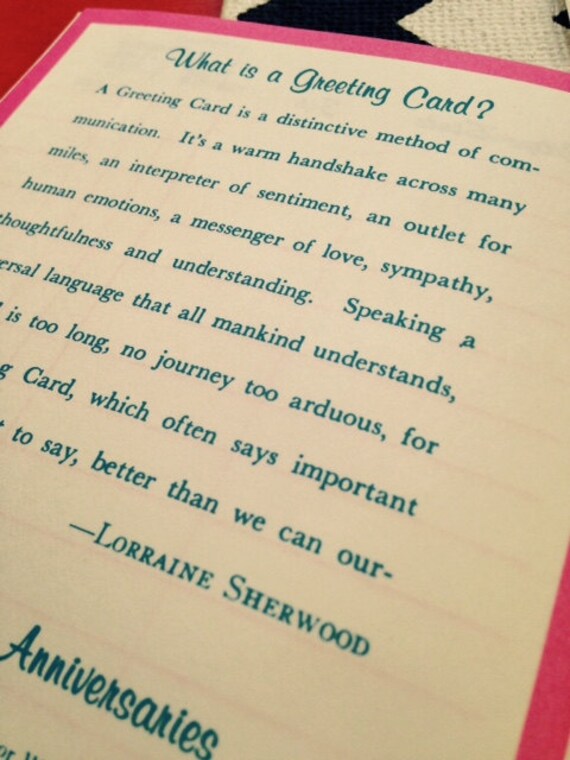 What is a Greeting Card?
A Greeting Card is a distinctive method of com-
munication. It's a warm handshake across many
miles, an interpreter of sentiment, an outlet for
human emotions, a messenger of love, sympathy,
thoughtfulness and understanding. Speaking a
ersal language that all mankind understands,
is too long, no journey too arduous, for
g Card, which often says important
to say, better than we can our-
—LORRAINE SHERWOOD
Anniversaries